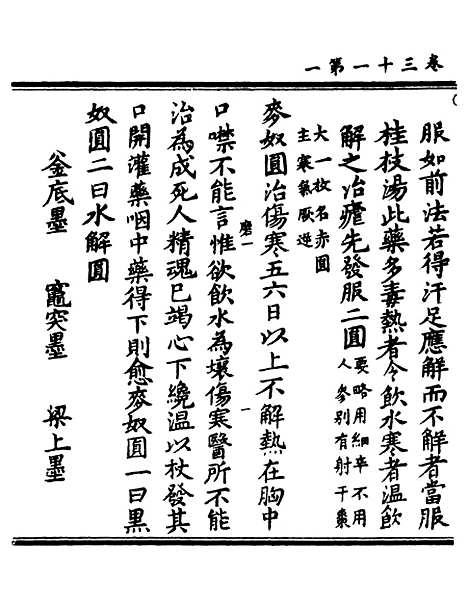 卷三十一第一
服如前法若得汗足應解而不解者當服
桂枝湯此藥多毒熱者令飲水寒者温飲
解之治瘧先發服二圓
要略用細辛不用
人參别有射干棗
大一枚名赤圓
主寒氣厥逆
麥奴圓治傷寒五六日以上不解熱在胸中
口噤不能言惟欲飲水為壞傷寒醫所不能
治為成死人精魂已竭心下纔温以杖發其
口開灌藥咽中藥得下則愈麥奴圓一曰黑
奴圓二曰水解圓
釜底墨 竈突墨 梁上墨